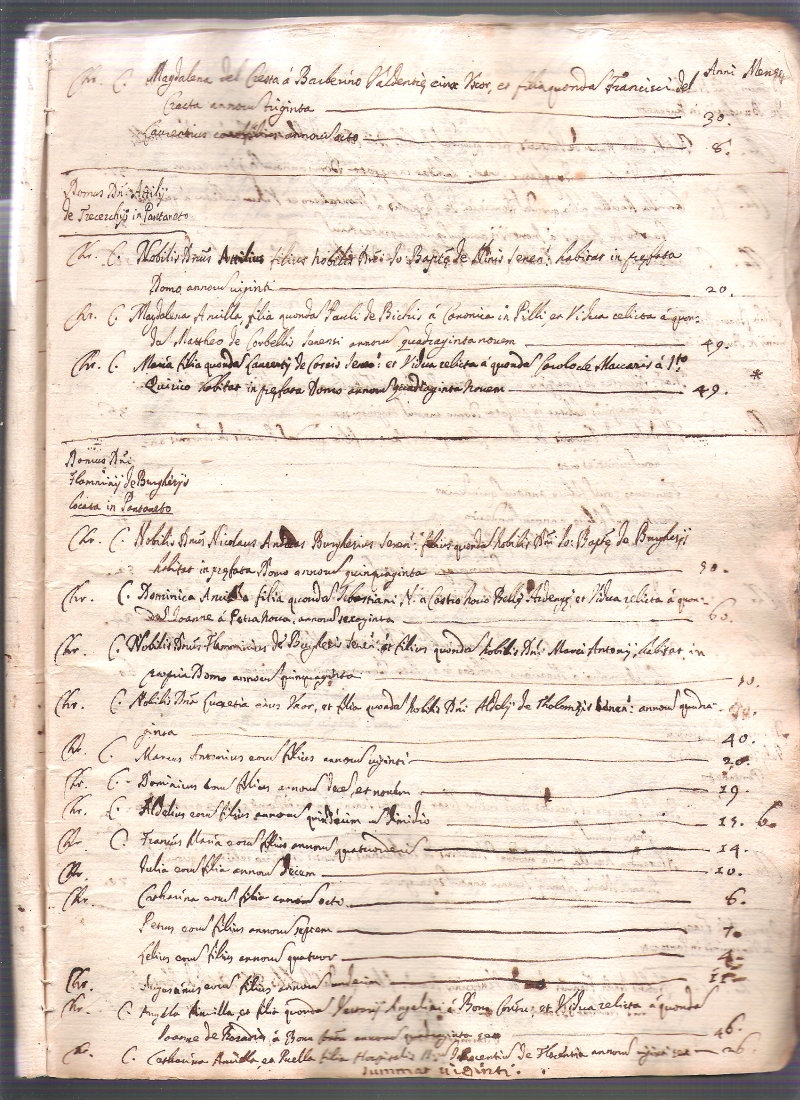 Anni Menses
Chr. C. Magdalena del Cresta á Barberino Valdentię eius Uxor, et filia quonda Francisci del
Cresta annorum triginta 30.
Laurentius filius annorum octo 8.
Domus Dni Attilij
de Trecerchijs in Pantaneto
Chr. C. Nobilis Dnus Attilius filius Nobilis Dni Io: Baptę de Senen: habitat in pręfata
Domo annorum viginti 20.
Chr. C. Magdalena Ancilla filia quonda Pauli de Bichis á Canonica in Pilli, et Vidua relicta á quon-
dam Mattheo de Corbellis Senensi annorum quadraginta novem 49.
Chr. C. Maria filia quonda Laurentij de Corsis Senen: et Vidua relicta á quonda de Maccaris á Sto
Quirico habitat in pręfata Domo annorum quadraginta novem 49. *
Domus Dni
Flaminij de Burghesijs
locata in Pantaneto
Chr. C. Nobilis Dnus Nicolaus Andreas Burghesius Senen: filius quonda Nobilis Dni Io: Baptę de Burghesijs
habitat in pręfata Domo annorum quinquaginta 50.
Chr. C. Dominica Ancilla filia quonda Sebastiani N. á Castro novo et Vidua relicta á quon-
dam Ioanne á Petra noua annorum sexaginta 60.
Chr. C. Nobilis Dnus Flaminius de Burghesis Senen: et filius quonda Nobilis Dni Marci Antonij, habitat in
propria Domo annorum quinquaginta 50.
Chr. C. Nobilis Dna Lucretia eius Uxor, et filia quonda Nobilis Dni Aldelij de Tholomeis Senen: annorum quadra-
ginta 40.
Chr. C. Marcus Antonius eorum filius annorum viginti 20.
Chr. C. Dominicus eorum filius annorum decem, et novem 19.
Chr. C. Aldelius eorum filius annorum quindecim cum dimidio 15. 6.
Chr. C. Francus Maria eorum filius annorum quatuordecim 14.
Chr. Iulia eorum filia annorum decem 10.
Chr. Catharina eorum filia annorum octo 8.
Petrus eorum filius annorum septem 7.
Lelius eorum filius annorum quatuor 4.
Chr. eorum filius annorum undecim 11.
Chr. C. Angela Ancilla et filia quonda Angelini á et Vidua relicta á quonda
Ioanne de annorum quadraginta sex 46.
Chr. C. Catharina Ancilla, et Puella filia Hospitalis de Florentia annorum viginti sex 26.
summat viginti.